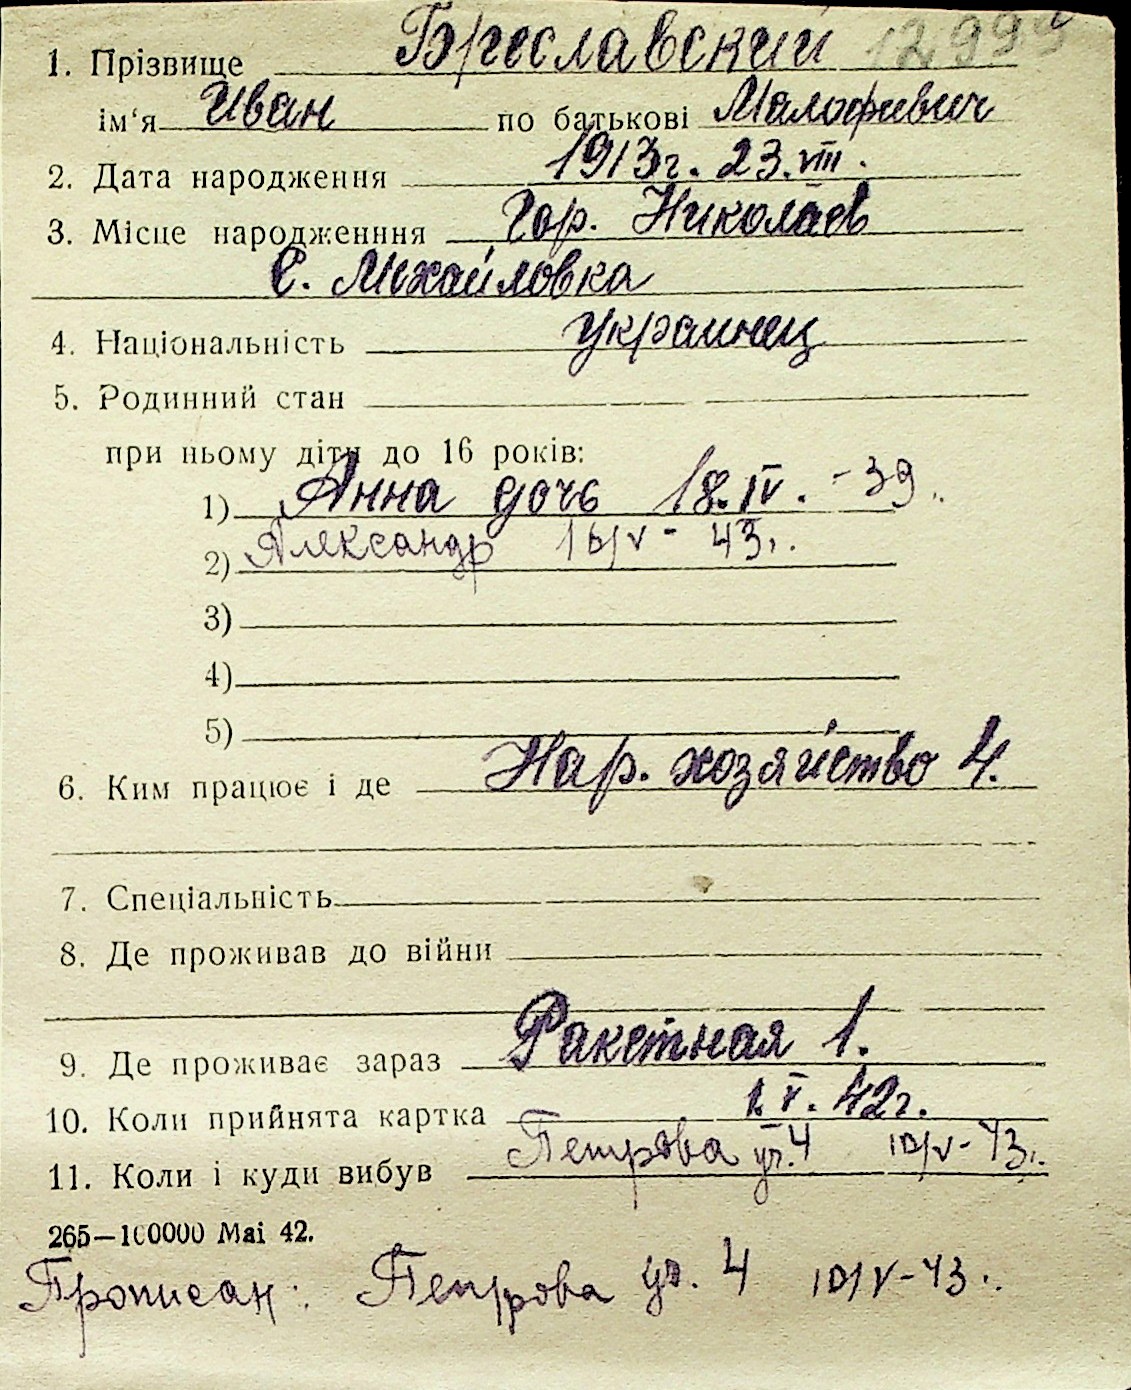 1. Прізвище Бреславский 12999
ім‘я Иван по батькові Малофиевич
2. Дата народження 1913г. 23.VIII.
3. Місце народженння Гор. Николаев
С. Михайловка
4. Національність Украинец
5. Родинний стан
при ньому діти до 16 років:
1) Анна дочь 18.IV. -39..
2) Александр 16/V- 43г.
3)
4)
5)
6. Ким працює і де Нар. хозяйство 4.
7. Спеціальність
8. Де проживав до війни
9. Де проживає зараз Ракетная 1.
10. Коли прийнята картка 1.V. 42г.
11. Коли і куди вибув Петрова ул. 4 10/V-43г.
265—100000 Mai 42.
Прописан: Петрова ул. 4 10/V-43г.